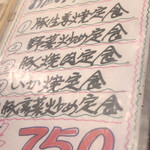 ① 豚生姜焼定食
② 野菜炒め定食
③ 豚焼肉定食
いか焼定食
豚高菜炒め定食
750